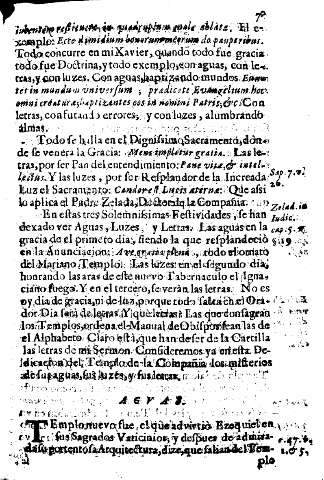 iubentem restituere, in quadruplum male ablata. El e-
xemplo: Ecce dimidium bonorum meorum do pauperibus.
Todo concurre en mi Xavier, quando todo fue gracia
todo fue Doctrina, y todo exemplo, con aguas, con le-
tras, y con luzes. Con aguas, baptizando mundos. Euntes
in mundum vniversum, prædicate Evangelium hom
omni creaturæ, baptizantes eos in nomini Patris, &c. Con
letras, confutando errores, y con luzes, alumbrando
almas.
Todo se halla en el Dignissimo Sacramento, don-
de se venera la Gracia: Mens impletur gratia. Las le-
tras, por ser Pan del entendimiento: Pane vitæ, & intel-
lectus. Y las luzes, por ser Resplandor de la Increada
Luz el Sacramento: Candor est Lucis æterna: Que assi
lo aplica el Padre Zelada, Doctor de la Compañia.
Sap 7. v.
26.
Zelad. in
Iudic.
cap. 5. v.
En estas tres Solemnissimas Festividades, se han
dexado ver Aguas, Luzes, y Letras. Las aguas en la
gracia de el primero dia, siendo la que resplandeciò
en la Anunciacion: Ave gratia plena, todo el ornato
del Mariano Templo. Las luzes en el segundo dia,
honrando las aras de este nuevo Tabernaculo el Igna-
ciano fuego. Y en el tercero, se veràn las letras. No es
oy dia de gracia, ni de luz, porque todo saldrà en el Ora-
dor. Dia serà de letras. Y què letras? Las que consagran
los Templos, ordena el Manual de Obispos sean las de
el Alphabeto. Claro està, que han de ser de la Cartilla
las letras de mi Sermon. Consideremos ya en esta De-
dicacion del Templo de la Compañia los misterios
de sus aguas, sus luzes, y sus letras.
AGUAS.
TEmplo nuevo fue, el que advirtiò Ezequiel en
sus Sagrados Vaticinios, y despues de admira-
da su portentosa Arquitectura, dize, que salian del Tem-
plo